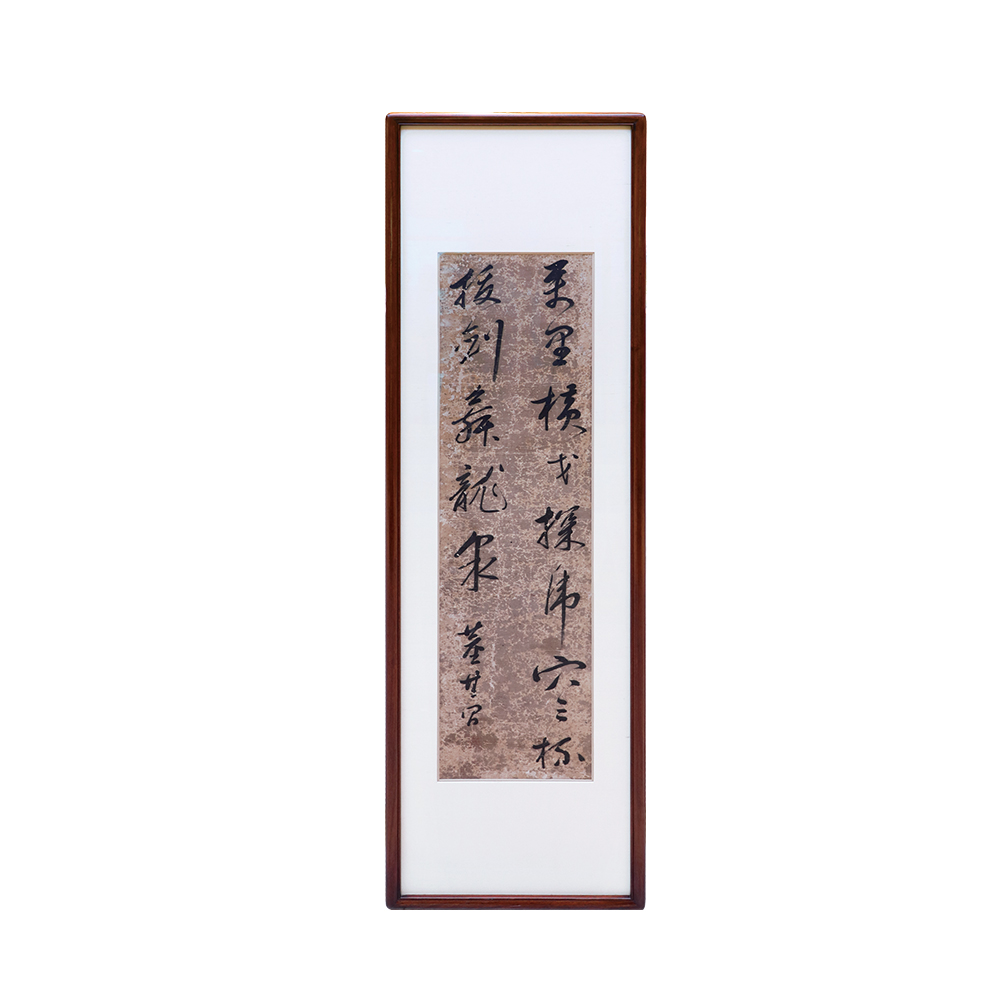 萬里橫戈探虎穴三杯
拔劍舞龍泉 董其昌